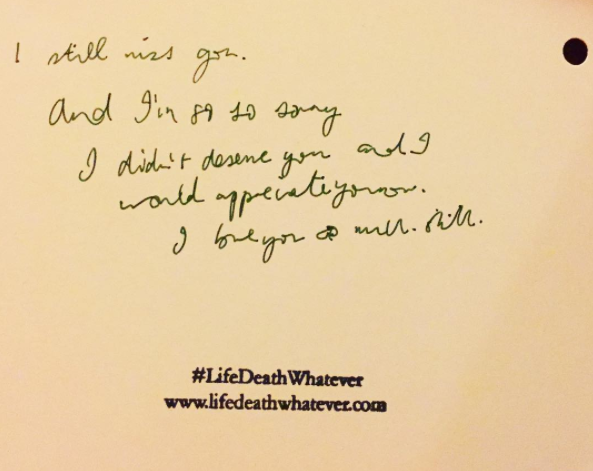 I still miss you.
And I'm so so sorry
I didn't deserve you and I
would appreciate you now.
I love you so much. still.
#LifeDeathWhatever
www.lifedeathwhatever.com